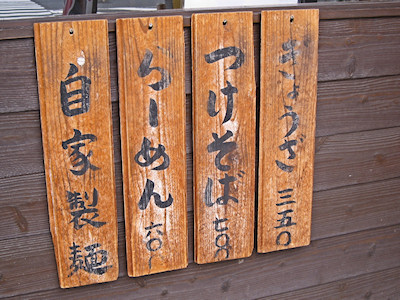 自家製麺
らーめん 六〇〇
つけそば 七〇〇
ぎょうざ 三五〇